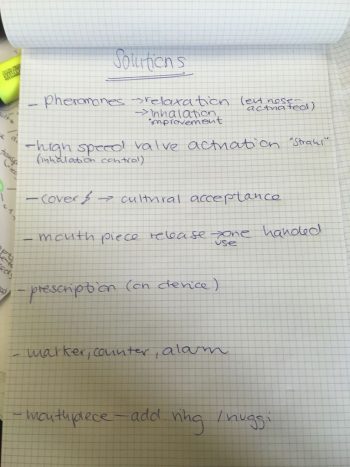 Solutions
- pheromones → relaxation (evt nose
→ inhalation actnated)
improvement
- high speed valve actnation "Strahl"
(inhalation control)
- cover → cultural acceptance
- mouth piece release → one handed
use
- prescription (on device)
- marker, counter, alarm
- mouthpiece - add. ring / nuggi